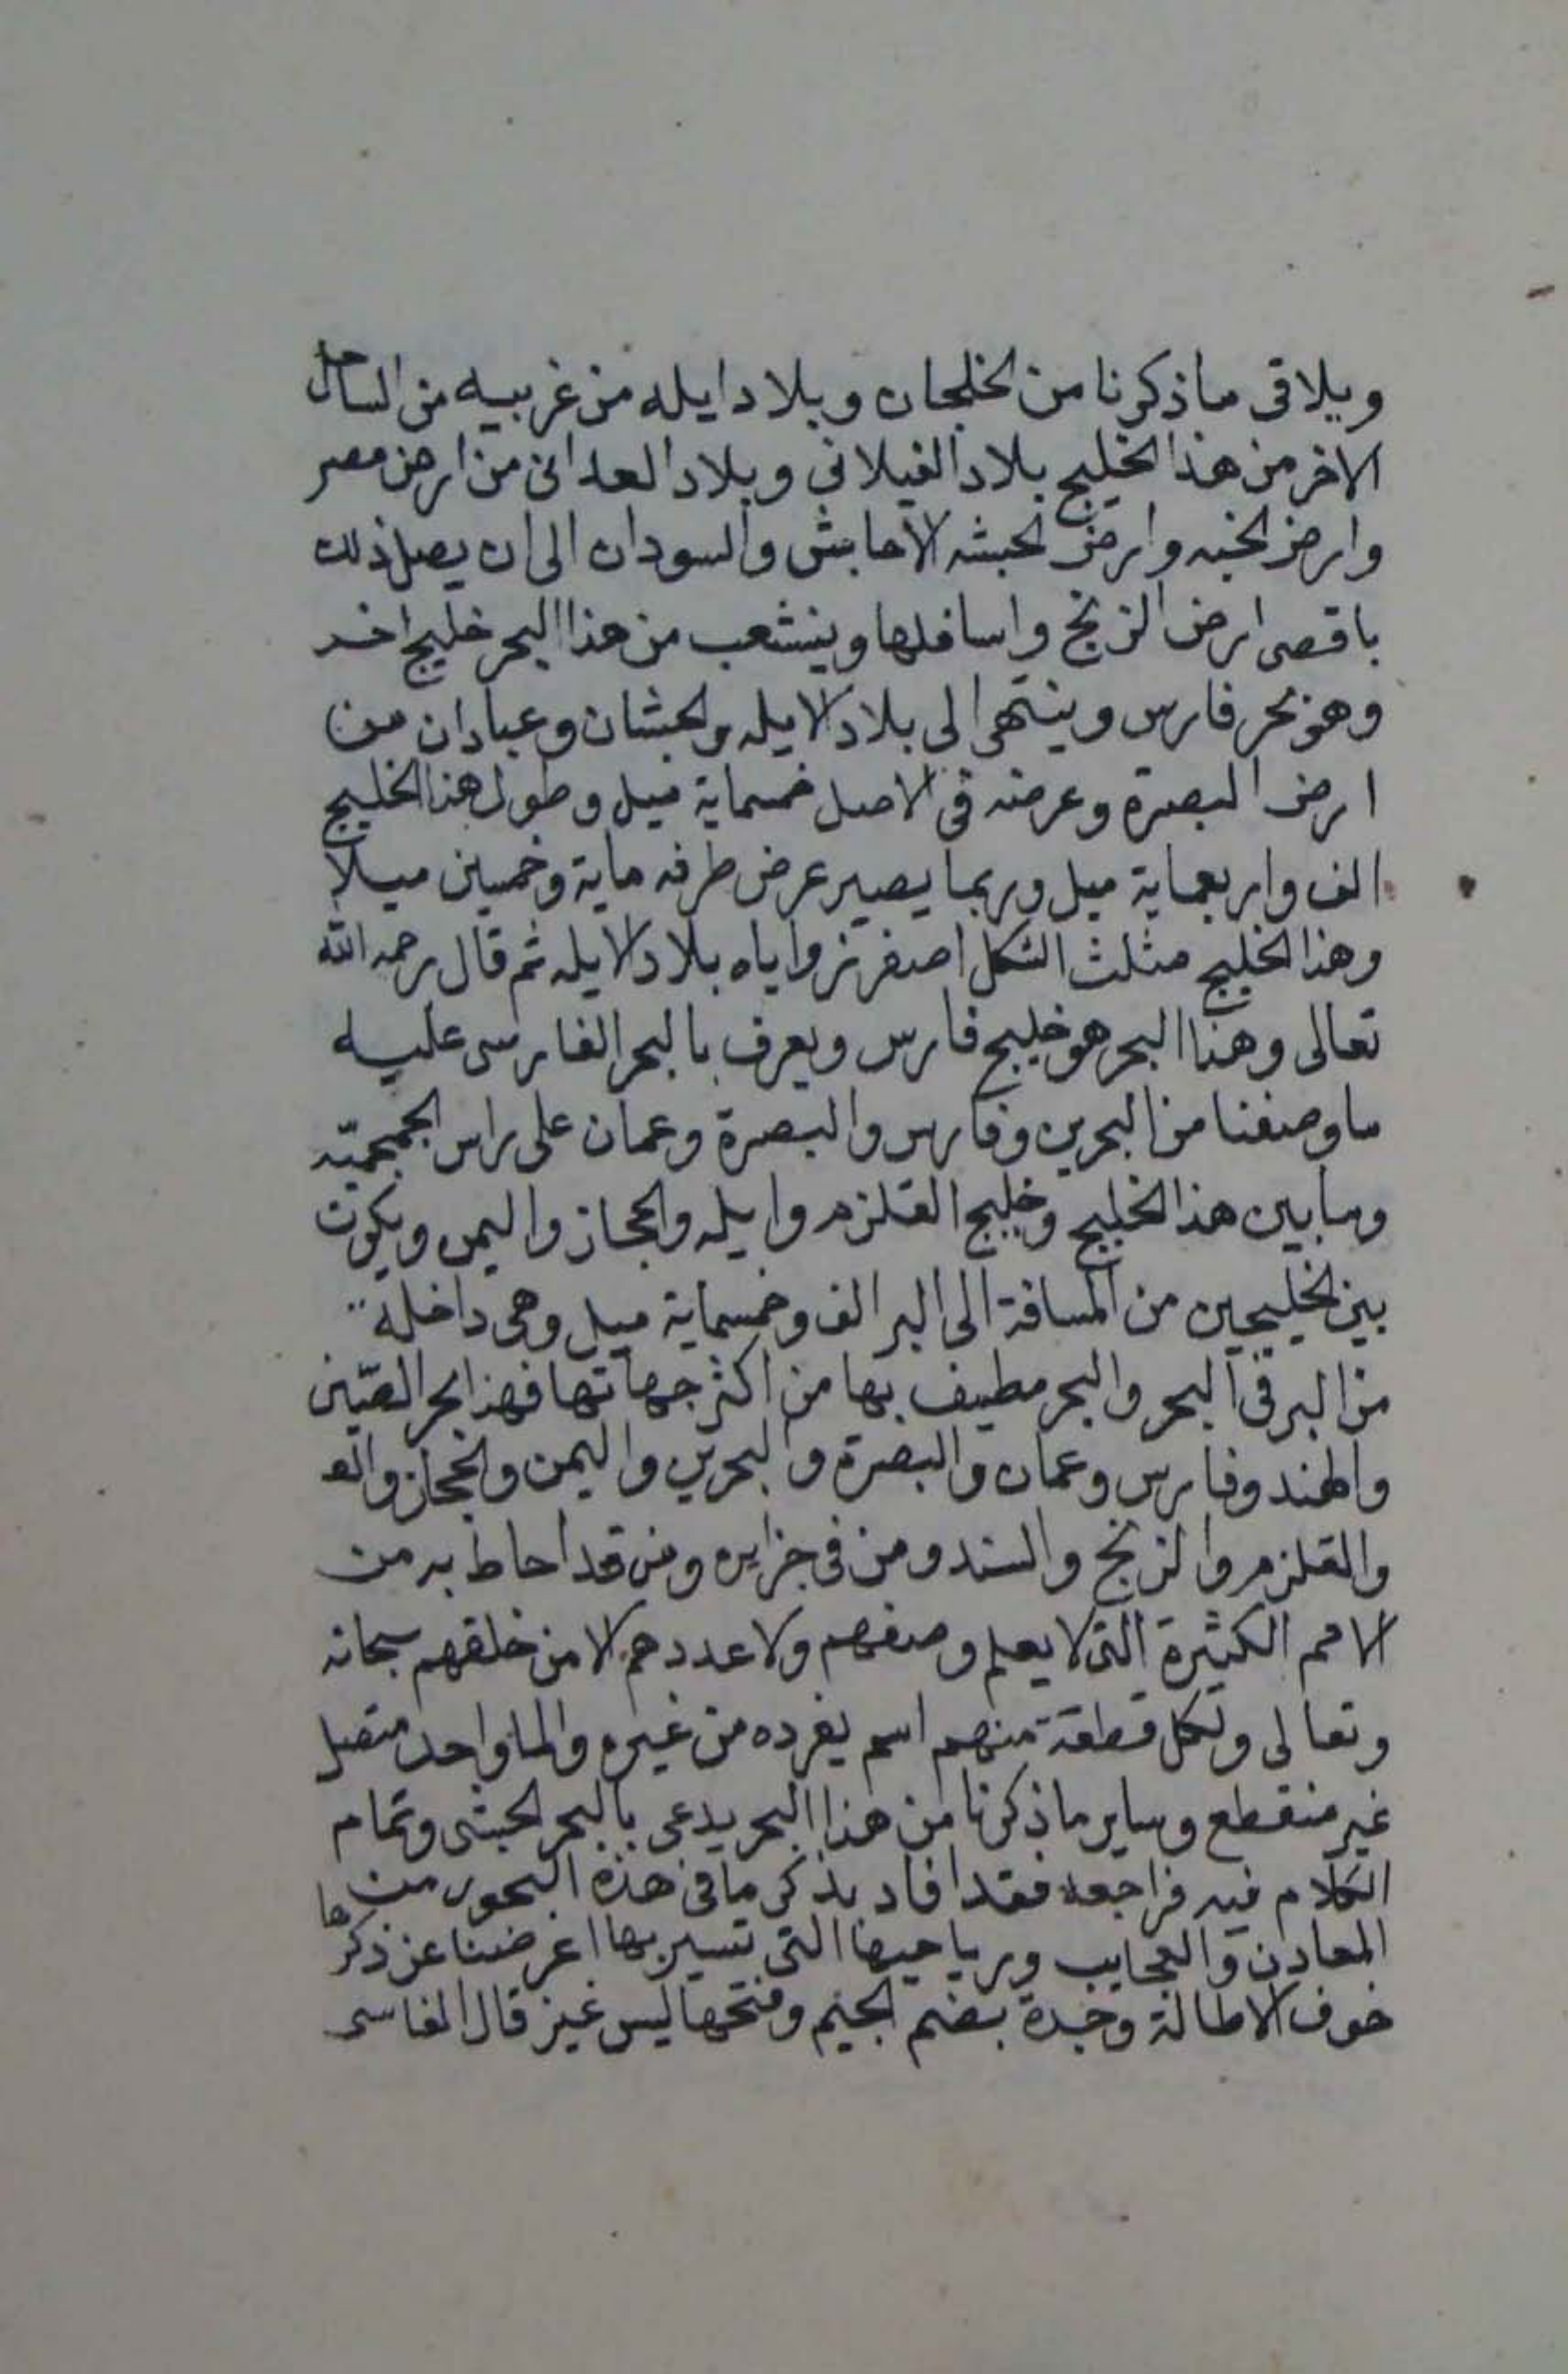 ويلاقى ماذكرنا من الخلجان وبلاد ايله من غربيه من الساحل
الاخر من هذا الخليج بلاد الغيلانى وبلاد العدانى من ارض مصر
وارض الخبه وارض الحبشه الاحابش والسودان الى ان يصل ذلك
باقصى ارض الزنج واسافلها وينشعب من هذا البحر خليج اخر
وهو بحر فارس وينتهى الى بلاد الايله والحبشان وعبادان من
ارض البصرة وعرضه فى الاصل خمسماية ميل وطول هذا الخليج
الف واربعماية ميل وربما يصير عرض طرفه ماية وخمسين ميلا
وهذا الخليج مثلث الشكل اصفر زواياه بلاد الايله ثم قال رحمه الله
تعالى وهذا البحر هو خليج فارس ويعرف بالبحر الفارسى عليه
ماوصفنا من البحرين وفارس والبصرة وعمان على راس الجمجميّه
ومابين هذا الخليج وخليج القلزم وايله والحجاز واليمن ويكون
بين الخليجين من المسافة الى البر الف وخمسماية ميل وهى داخلة
من البر فى البحر والبحر مطيف بها من اكثر جهاتها فهذا بحر الصّين
والهند وفارس وعمان والبصرة والبحرين واليمن والحجاز
والقلزم والزنج والسند ومن فى جزايره ومن قد احاط به من
الامم الكثيرة التى لا يعلم وصفهم ولا عددهم الا من خلقهم سبحانه
وتعالى ولكل قطعة منهم اسم يفرده من غيره والما واحد متصل
غير منقطع وساير ماذكرنا من هذا البحر يدعى بالبحر الحبشى وتمام
الكلام فيه فراجعه فقد افاد بذكر ما فى هذه البحور من
المعادن والعجايب ورياحيها التى تسير بها اعرضنا عن ذكرها
خوف الاطالة وجدة بضم الجيم وفتحها ليس غيز قال الفاسى